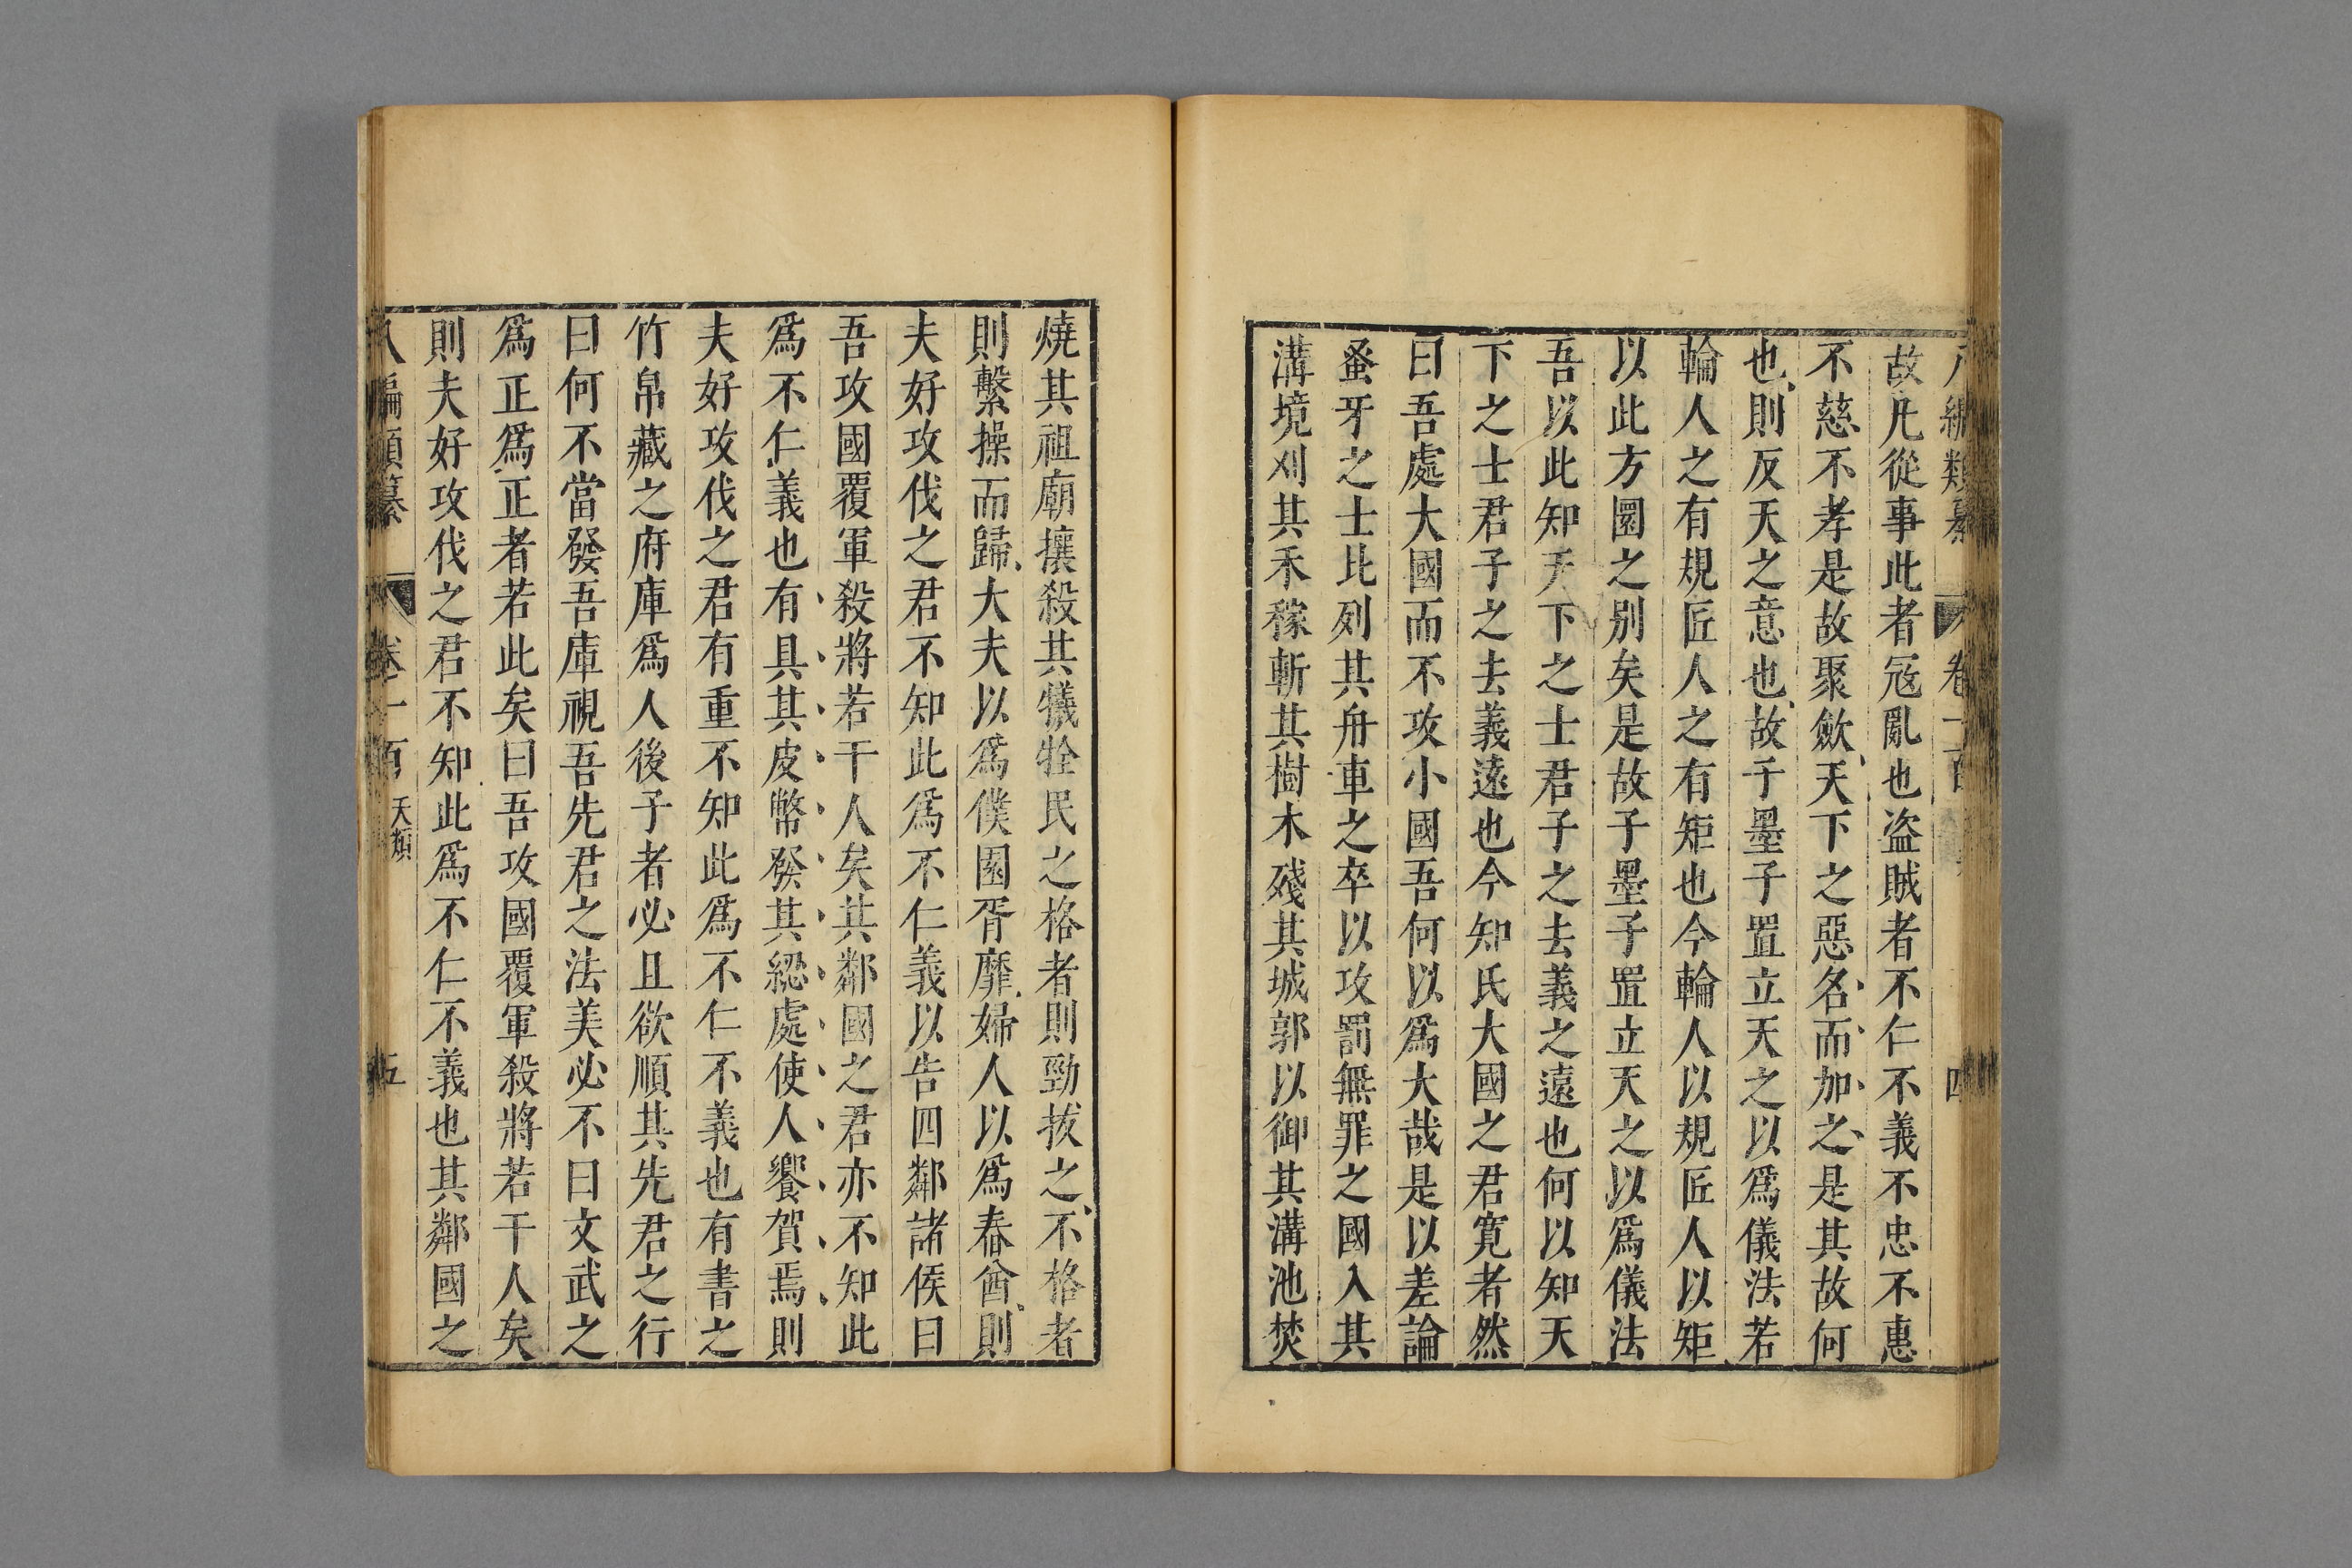 八編類纂 卷一百 四
故凡從事此者冦亂也盜賊者不仁不義不忠不惠
不慈不孝是故聚歛天下之惡名而加之是其故何
也則反天之意也故千墨子置立天之以爲儀法若
輪人之有規匠人之有矩也今輪人以規匠人以矩
以此方圜之别矣是故子墨子置立天之以爲儀法
吾以此知天下之士君子之去義之遠也何以知天
下之士君子之去義遠也今知氏大國之君寛者然
曰吾處大國而不攻小國吾何以爲大哉是以差論
蚤牙之士比列其舟車之卒以攻罰無罪之國入其
溝境刈其禾稼斬其樹木殘其城郭以御其溝池焚
燒其祖廟攘殺其犧牷民之格者則勁拔之不格者
則繫操而歸大夫以爲僕圉胥靡婦人以爲舂酋則
夫好攻伐之君不知此爲不仁義以告四鄰諸侯曰
吾攻國覆軍殺將若干人矣其鄰國之君亦不知此
爲不仁義也有具其皮幣發其綛處使人饗賀焉則
夫好攻伐之君有重不知此爲不仁不義也有書之
竹帛藏之府庫爲人後子者必且欲順其先君之行
曰何不當發吾庫視吾先君之法美必不曰文武之
爲正爲正者若此矣曰吾攻國覆軍殺將若干人矣
則夫好攻伐之君不知此爲不仁不義也其鄰國之
八編類纂 卷一百 天類 五